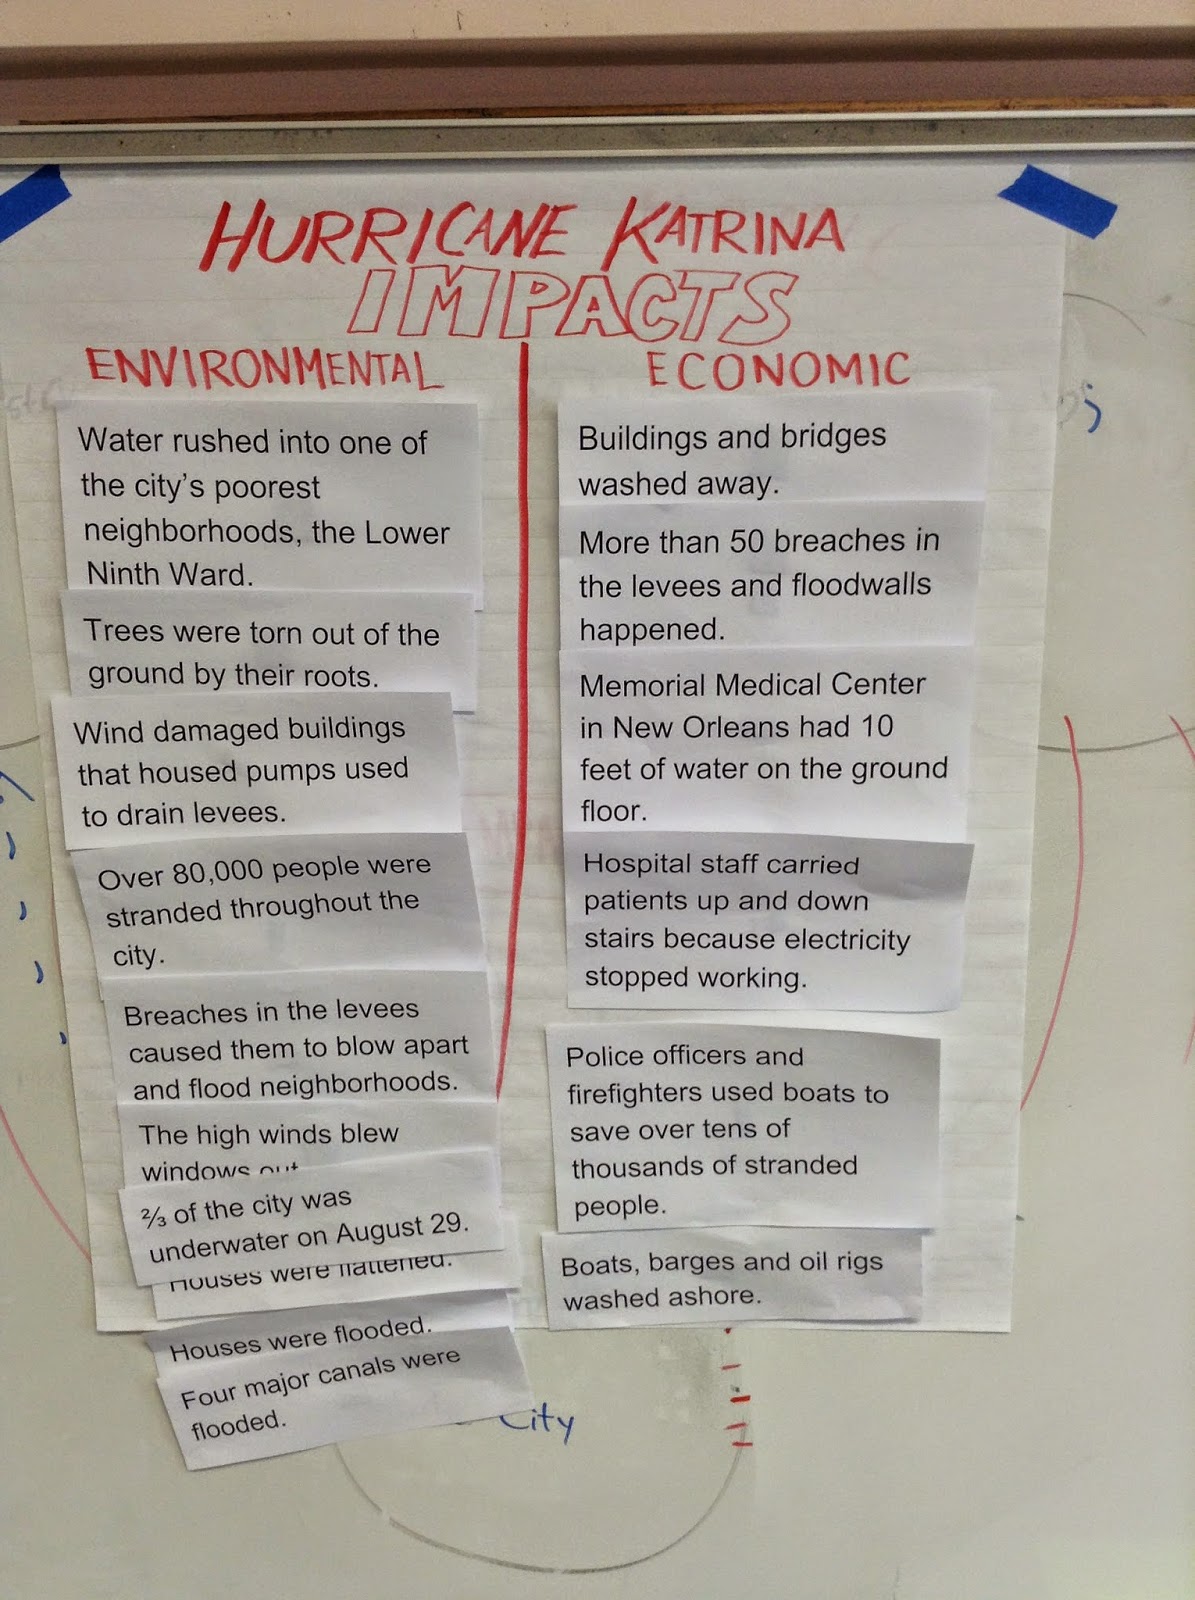 HURRICANE KATRINA
IMPACTS
ENVIRONMENTAL
Water rushed into one of
the city's poorest
neighborhoods, the Lower
Ninth Ward.
Trees were torn out of the
ground by their roots.
Wind damaged buildings
that housed pumps used
to drain levees.
Over 80,000 people were
stranded throughout the
city.
Breaches in the levees
caused them to blow apart
and flood neighborhoods.
The high winds blew
windows out
⅔ of the city was
underwater on August 29.
Houses were flattened.
Houses were flooded.
Four major canals were
flooded.
ECONOMIC
Buildings and bridges
washed away.
More than 50 breaches in
the levees and floodwalls
happened.
Memorial Medical Center
in New Orleans had 10
feet of water on the ground
floor.
Hospital staff carried
patients up and down
stairs because electricity
stopped working.
Police officers and
firefighters used boats to
save over tens of
thousands of stranded
people.
Boats, barges and oil rigs
washed ashore.
City